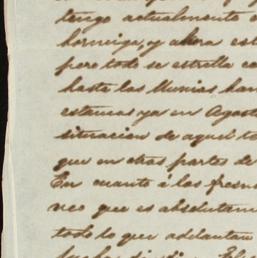 tengo actualmente
hormiga, y ahora est
pero todo se estrella co
hasta las Munias han
estamos ya en Agost
situacion de aquel t
que en otras partes de
En cuanto á los fresn
veo que es absolutam
todo lo que adelantan